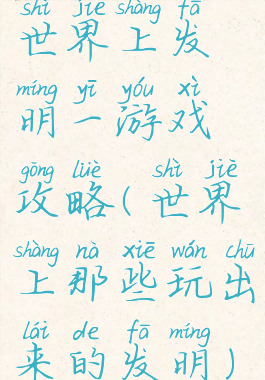 shì jiè shàng fā
世界上发
míng yī yóu xì
明一游戏
gōng lüè shì jiè
攻略(世界
shàng nà xiē wán chū
上那些玩出
lái de fā míng
来的发明)